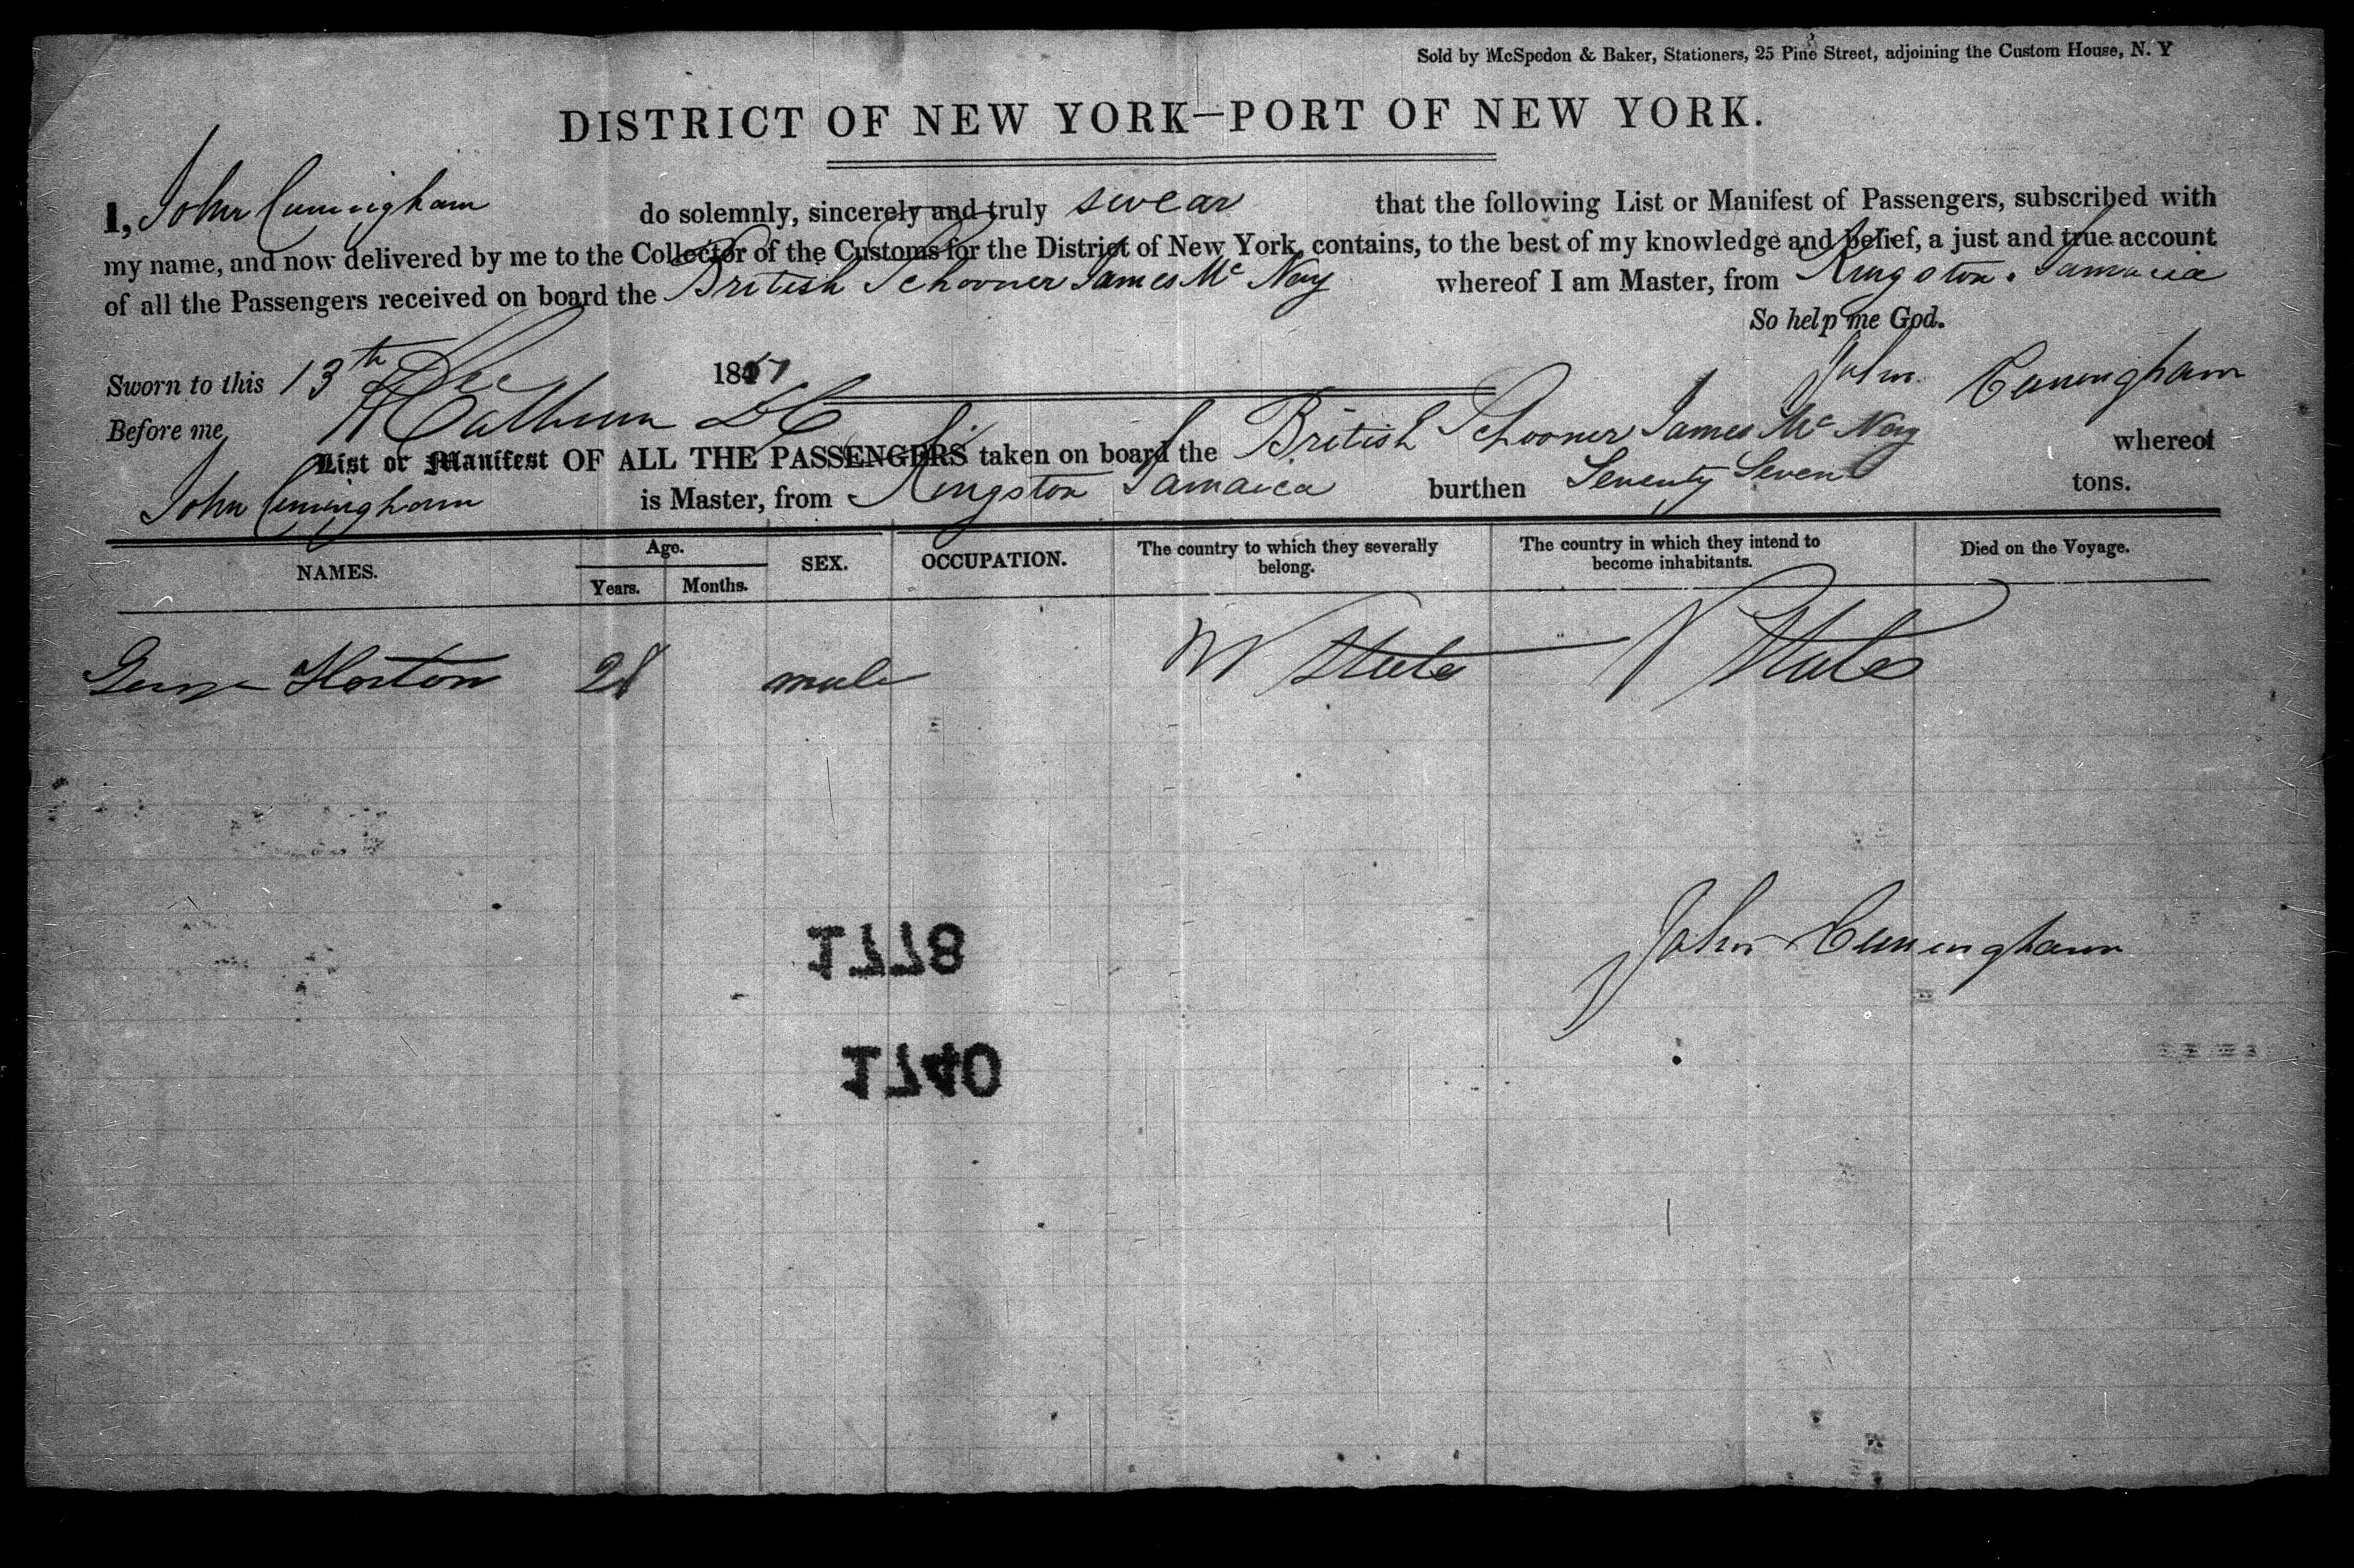 Sold by McSpedon & Baker, Stationers, 25 Pine Street, adjoining the Custom House, N. Y
DISTRICT OF NEW YORK—PORT OF NEW YORK.
I, John Cuningham do solemnly, sincerely and truly swear that the following List or Manifest of Passengers, subscribed with
my name, and now delivered by me to the Collector of the Customs for the District of New York, contains, to the best of my knowledge and belief, a just and true account
of all the Passengers received on board the British Schooner James Mc Nay whereof I am Master, from Kingston. Jamaica
So help me God.
Sworn to this 13th Dec 1851 John Cuningham
Before me, Calhoun DC
List or Manifest OF ALL THE PASSENGERS taken on board the British Schooner James Mc Nay whereof
John Cuningham is Master, from Kingston Jamaica burthen Seventy Seven tons.
NAMES. Age. Years. Months. SEX. OCCUPATION. The country to which they severally belong. The country in which they intend to become inhabitants. Died on the Voyage.
George Horton 28 male States States
1778
John Cuningham
1740